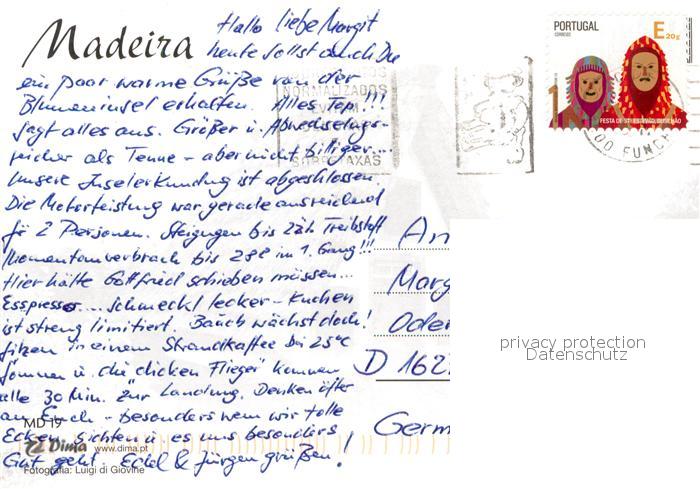 Madeira
Hallo liebe Margit
heute sollst auch Du
ein paar warme Grüße von der
Blumeninsel erhalten. Alles Top!!!
sagt alles aus. Größer u. Abwechslungs-
reicher als Tenne - aber nicht billiger...
Unsere Inselerkundung ist abgeschlossen.
Die Motorleistung war gerade ausreichend
für 2 Personen. Steigungen bis 22% Treibstoff
Momentanverbrach bis 28l im 1. Gang!!!
Hier hätte Gottfried schieben müssen...
Esspresso.... schmeckt lecker - Kuchen
ist streng limitiert. Bauch wächst doch!
Sitzen in einem Strandkaffee bei 25°C
Sonnen u. die "dicken Flieger" kommen
alle 30 Min. zur Landung. Denken öfter
an Euch - besonders wenn wir tolle
Ecken sichten u. es uns besonders
Gut geht. & Jürgen grüßen!
MD 19
Dima www.dima.pt
Fotografia: Luigi di Giovine
PORTUGAL
CORREIOS
E 20g
FESTA DE STº ESTEVÃO,
NORMALIZADOS
SOBRETAXAS
FUNCH
An
Marg
Oder
D 162
Germ
privacy protection
Datenschutz